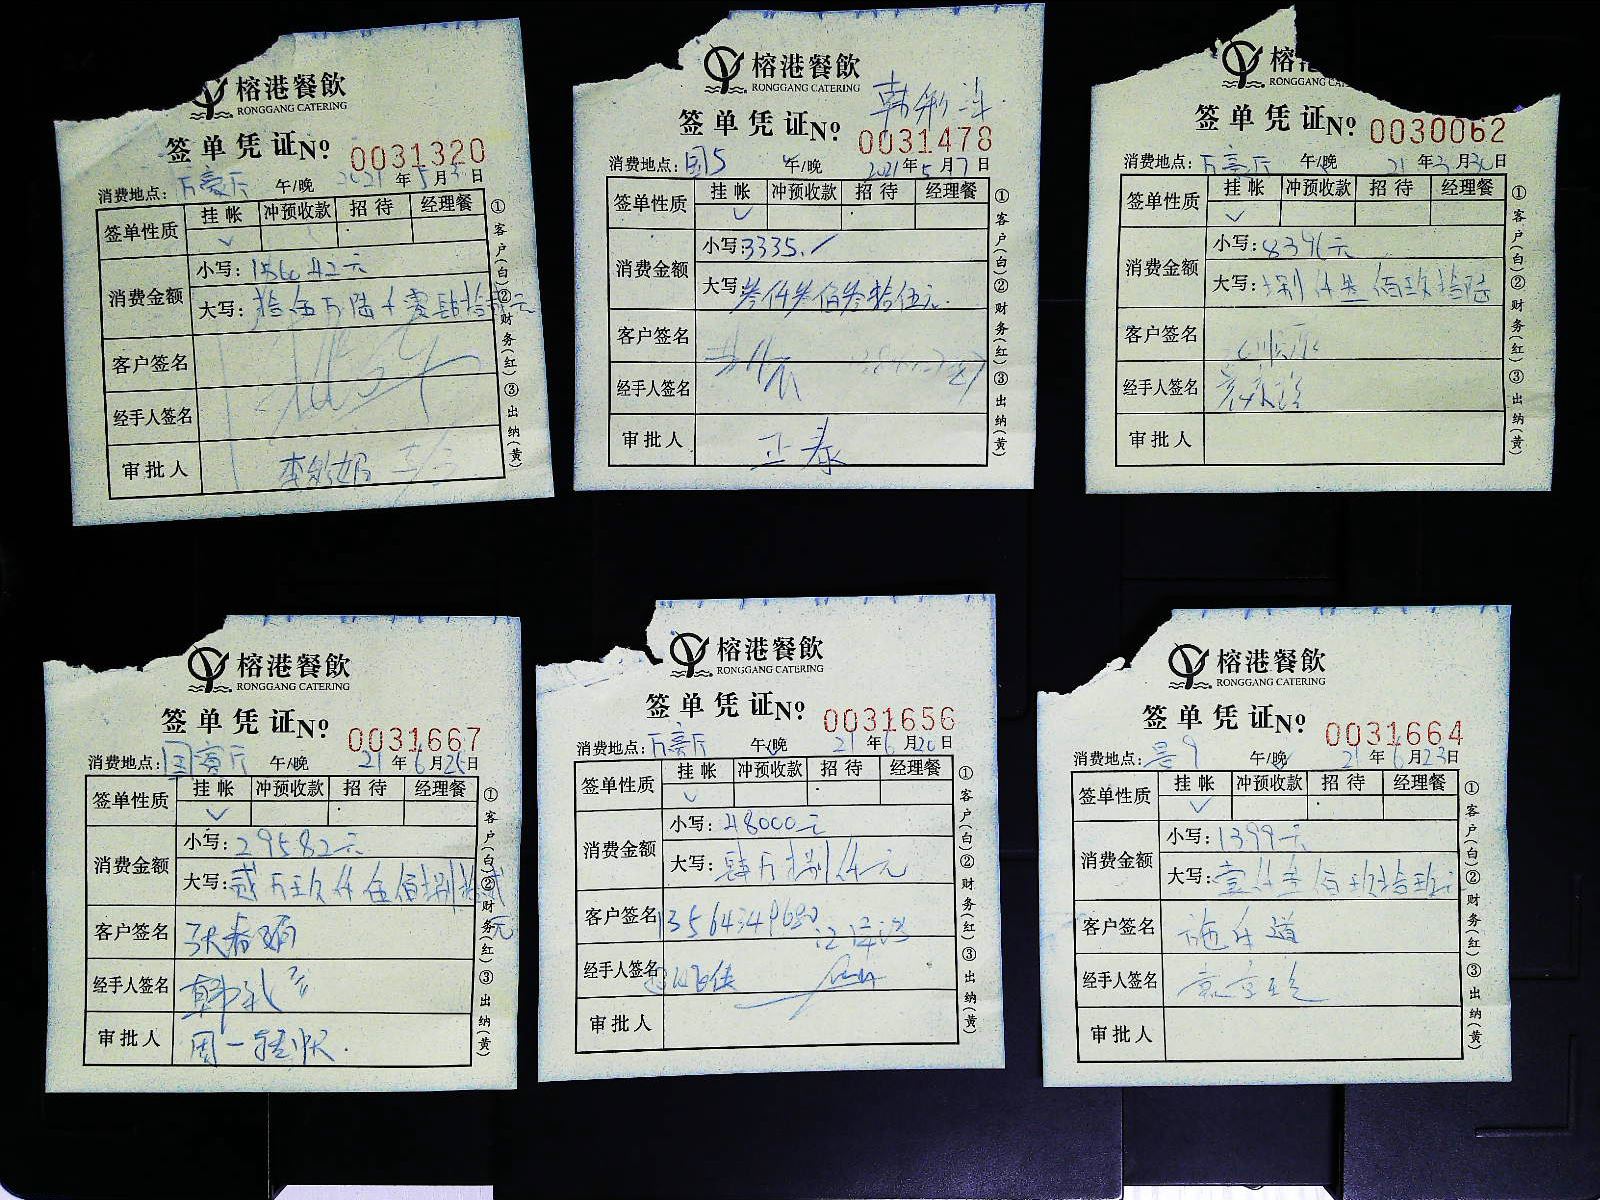 榕港餐飲
RONGGANG CATERING
签单凭证 No 0031320
消费地点：万豪厅 午/晚 2021年5月3日
签单性质 挂帐 冲预收款 招待 经理餐
✓
消费金额 小写：156042元
大写：拾伍万陆仟零肆拾贰元
客户签名
经手人签名
审批人
①客户(白)②财务(红)③出纳(黄)
榕港餐飲
RONGGANG CATERING
签单凭证 No 0031478
消费地点：国5 午/晚 2021年5月7日
签单性质 挂帐 冲预收款 招待 经理餐
✓
消费金额 小写：3335.
大写：叁仟叁佰叁拾伍元.
客户签名
经手人签名
审批人 正泰
①客户(白)②财务(红)③出纳(黄)
榕
RONGGANG CA
签单凭证 No 0030062
消费地点：万豪厅 午/晚 21年3月30日
签单性质 挂帐 冲预收款 招待 经理餐
✓
消费金额 小写：8396元
大写：捌仟叁佰玖拾陆
客户签名
经手人签名
审批人
①客户(白)②财务(红)③出纳(黄)
榕港餐飲
RONGGANG CATERING
签单凭证 No 0031667
消费地点：国宴厅 午/晚 21年6月25日
签单性质 挂帐 冲预收款 招待 经理餐
✓
消费金额 小写：29582元
大写：贰万玖仟伍佰捌拾贰元
客户签名 张春娟
经手人签名
审批人
①客户(白)②财务(红)③出纳(黄)
榕港餐飲
RONGGANG CATERING
签单凭证 No 0031656
消费地点：万豪厅 午/晚 21年6月20日
签单性质 挂帐 冲预收款 招待 经理餐
✓
消费金额 小写：48000元
大写：肆万捌仟元
客户签名 13564349680
经手人签名
审批人
①客户(白)②财务(红)③出纳(黄)
榕港餐飲
RONGGANG CATERING
签单凭证 No 0031664
消费地点： 午/晚 21年6月23日
签单性质 挂帐 冲预收款 招待 经理餐
✓
消费金额 小写：1399元
大写：壹仟叁佰玖拾玖元
客户签名 施东道
经手人签名
审批人
①客户(白)②财务(红)③出纳(黄)